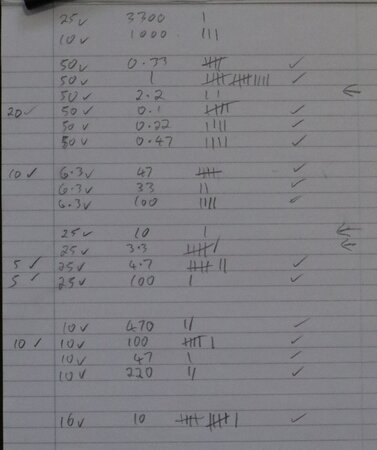 25v 3300 |
10v 1000 |||
50v 0.33 ||||
50v 1 |||| |||| ||||
50v 2.2 || ←
20✓ 50v 0.1 |||| ✓
50v 0.22 |||| ✓
50v 0.47 |||| ✓
10✓ 6.3v 47 |||| ✓
6.3v 33 || ✓
6.3v 100 |||| ✓
25v 10 | ←
25v 3.3 |||| | ←
5✓ 25v 4.7 |||| || ✓
5✓ 25v 100 | ✓
10v 470 || ✓
10✓ 10v 100 |||| | ✓
10v 47 | ✓
10v 220 || ✓
16v 10 |||| |||| | ✓